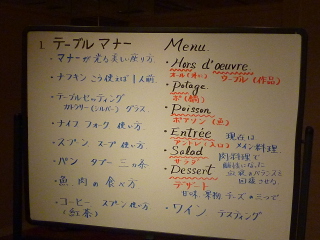 1. テーブル マナー
・マナーが光る美しい座り方
・ナフキン こう使えば 1人前
・テーブルセッティング
カトラリー(シルバー) グラス
・ナイフ フォーク 使い方
・スプン スープ 使い方
・パン タブー 三ヵ条
・魚 肉の 食べ方
・コーヒー スプン使い方
(紅茶)
Menu
・Hors d'oeuvre
オール(外い) ウーブル(作品)
・Potage
ポ(鍋)
・Poisson
ポアソン(魚)
・Entrée 現在は
アントレ(入口) メイン料理
・Salad 肉料理で
サラダ
・Dessert
デザート
甘味 果物 チーズの三つで
・ワイン テスティング